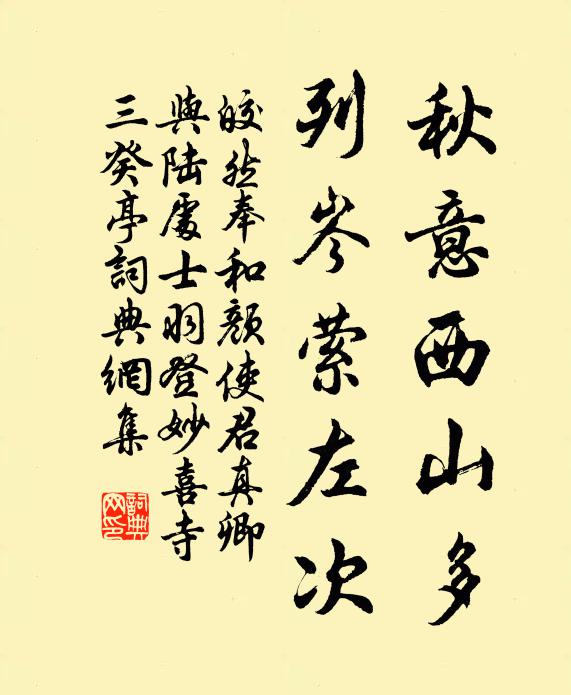 秋意西山多
列岑萦左次
皎然奉和颜使君真卿
与陆处士羽登妙喜寺
三癸亭詞典網集
詞典
网印